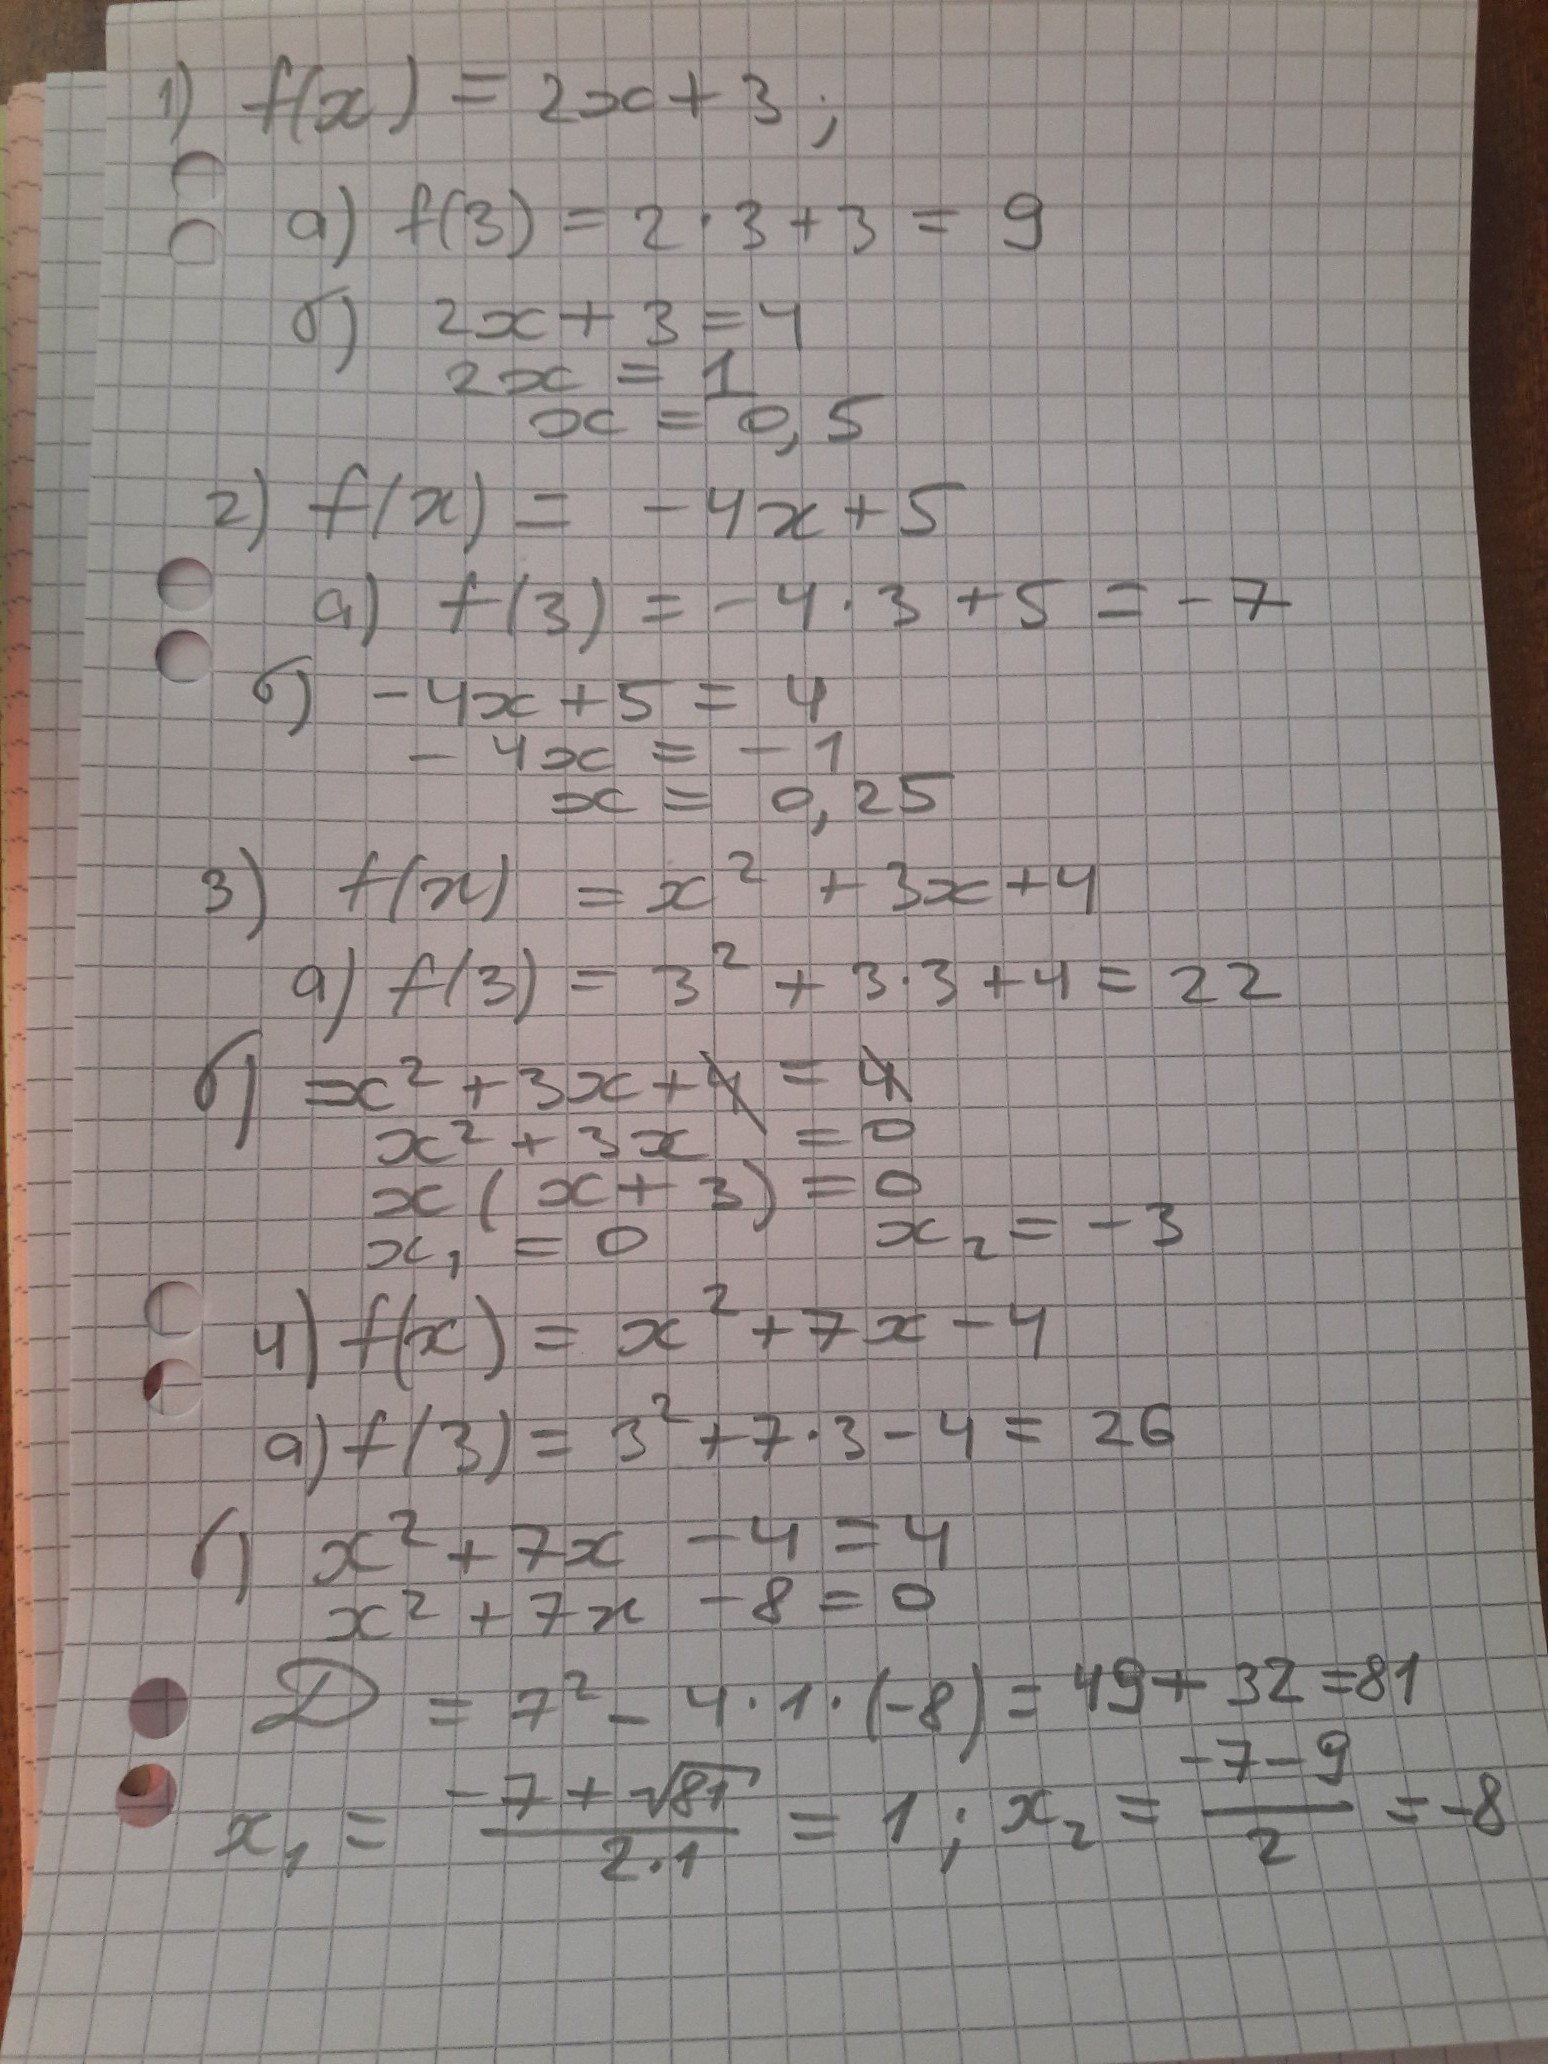 1) f(x) = 2x + 3;
а) f(3) = 2 · 3 + 3 = 9
б) 2x + 3 = 4
2x = 1
x = 0,5
2) f(x) = -4x + 5
а) f(3) = -4 · 3 + 5 = -7
б) -4x + 5 = 4
-4x = -1
x = 0,25
3) f(x) = x² + 3x + 4
а) f(3) = 3² + 3·3 + 4 = 22
б) x² + 3x + 4 = 4
x² + 3x = 0
x(x + 3) = 0
x₁ = 0 x₂ = -3
4) f(x) = x² + 7x - 4
а) f(3) = 3² + 7·3 - 4 = 26
б) x² + 7x - 4 = 4
x² + 7x - 8 = 0
D = 7² - 4·1·(-8) = 49 + 32 = 81
x₁ = (-7 + √81)/(2·1) = 1; x₂ = (-7 - 9)/2 = -8